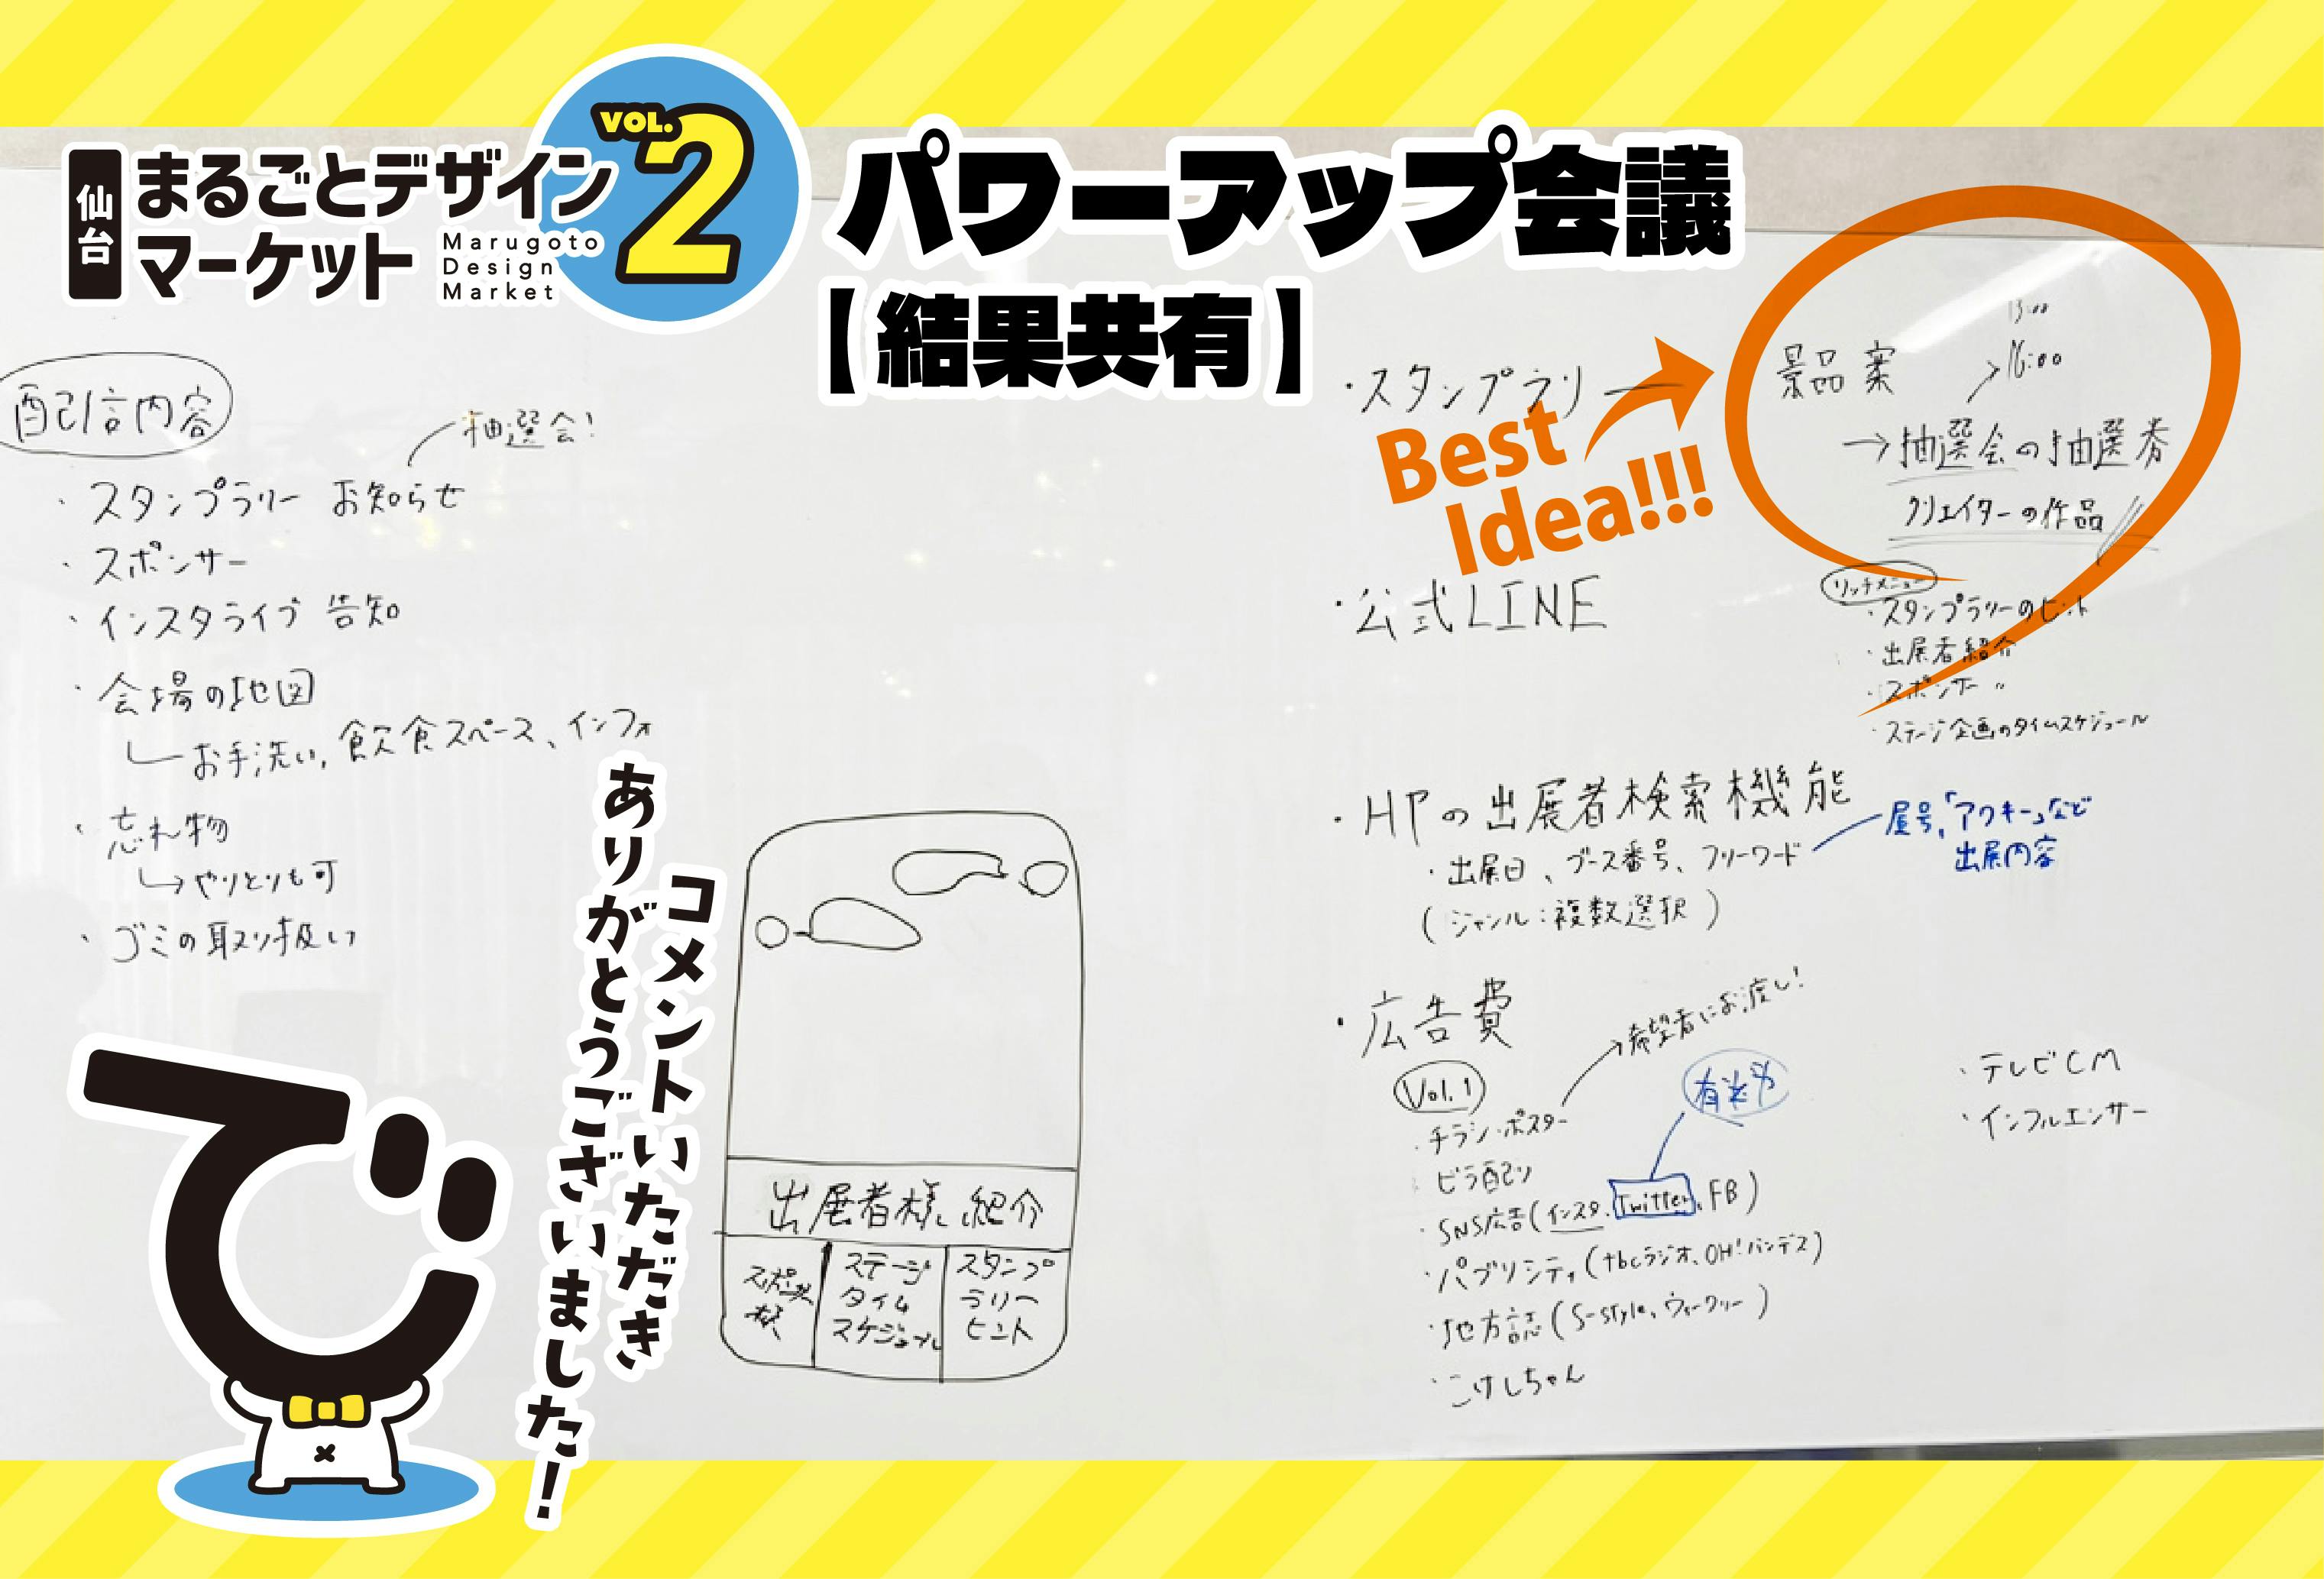 仙台
まるごとデザイン
マーケット
Marugoto
Design
Market
VOL.
2
パワーアップ会議
【結果共有】
配信内容
抽選会!
・スタンプラリー お知らせ
・スポンサー
・インスタライブ 告知
・会場の地図
お手洗い、飲食スペース、インフォ
・忘れ物
→やりとりも可
・ゴミの取り扱い
コメントいただき
ありがとうございました!
で
出展者様紹介
スポンサー様
ステージ
タイム
スケジュール
スタンプ
ラリー
ヒント
・スタンプラリ
Best
Idea!!!
景品案
13:00
16:00
→抽選会の抽選券
クリエイターの作品
・公式LINE
リッチメニュー
・スタンプラリーのヒント
・出展者紹介
・スポンサー 〃
・ステージ企画のタイムスケジュール
・HPの出展者検索機能
・出展日、ブース番号、フリーワード
(ジャンル:複数選択)
屋号、「アクキー」など
出展内容
・広告費
Vol.1
・チラシ・ポスター
→希望者にお渡し!
・ビラ配り
・SNS広告(インスタ、Twitter、FB)
・パブリシティ(tbcラジオ、OH!バンデス)
・地方誌(S-style、ウィークリー)
・こけしちゃん
・テレビCM
・インフルエンサー